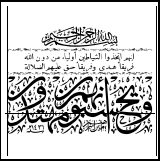 بسم الله الرحمن الرحيم
إنهم اتخذوا الشياطين أولياء من دون الله
فريقا هدى وفريقا حق عليهم الضلالة
ويحسبون أنهم مهتدون